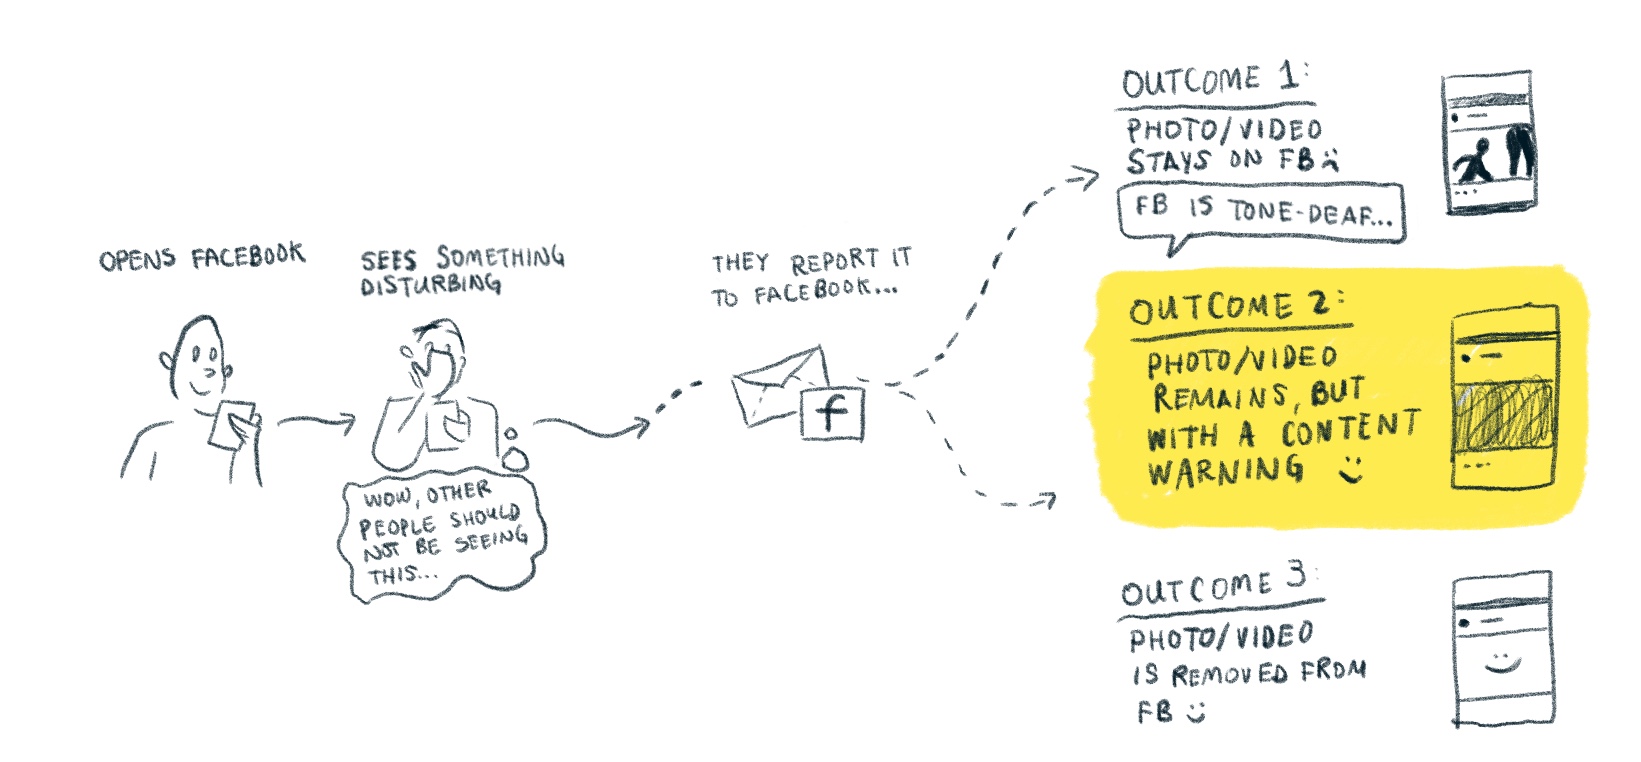 OPENS FACEBOOK
SEES SOMETHING
DISTURBING
WOW, OTHER
PEOPLE SHOULD
NOT BE SEEING
THIS...
THEY REPORT IT
TO FACEBOOK...
f
OUTCOME 1:
PHOTO/VIDEO
STAYS ON FB :(
FB IS TONE-DEAF...
OUTCOME 2:
PHOTO/VIDEO
REMAINS, BUT
WITH A CONTENT
WARNING :)
OUTCOME 3:
PHOTO/VIDEO
IS REMOVED FROM
FB :)